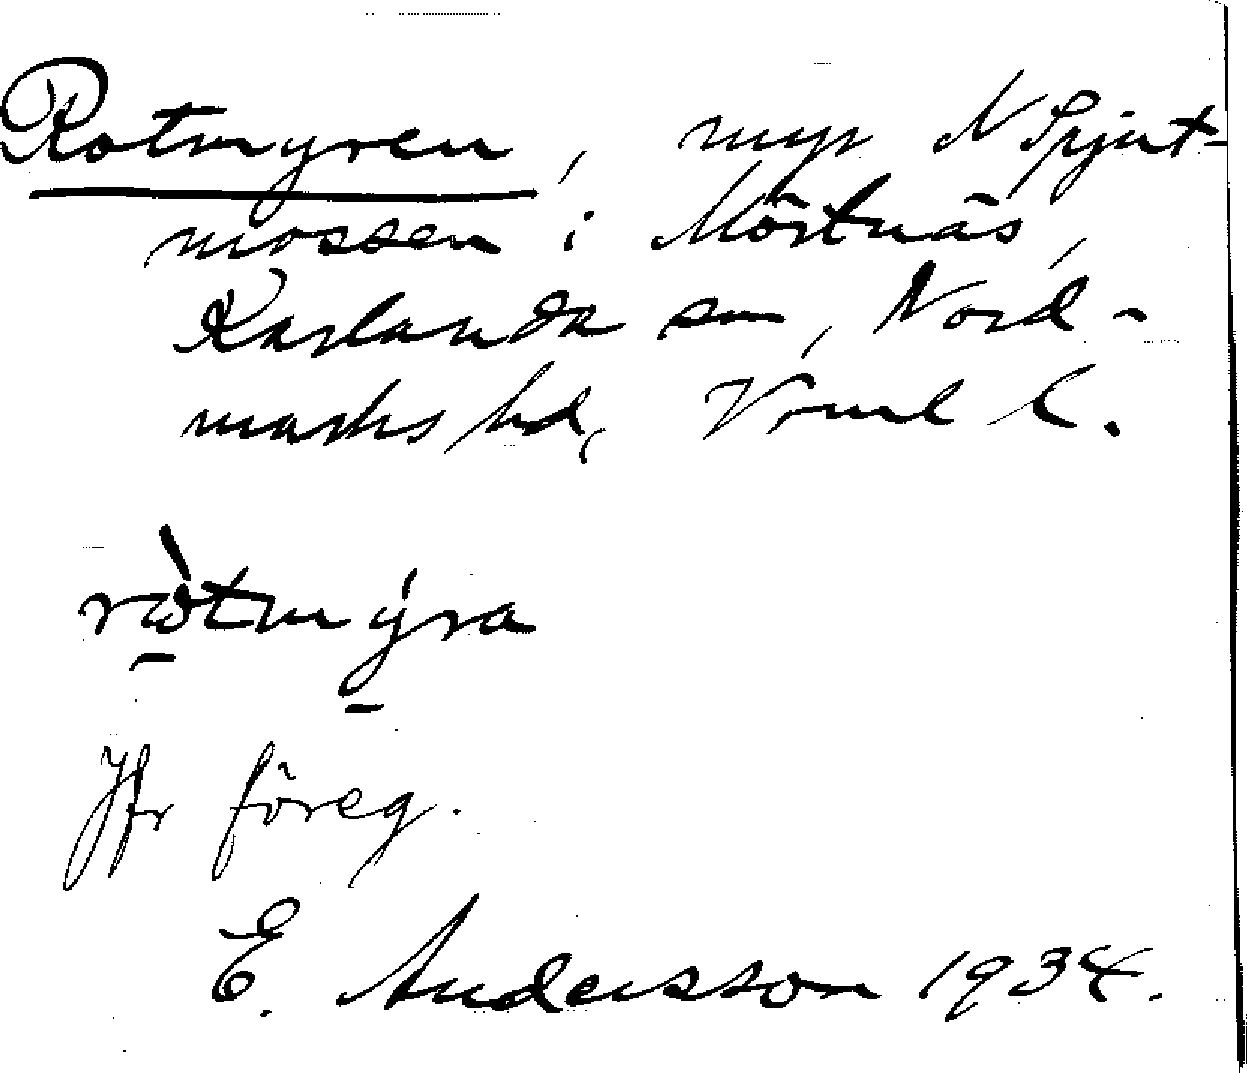 Rotmyren, myr N Spjut-
mossen i Mörtnäs,
Karlanda sn, Nord-
marks hd, Vrml l.
ròtmýra
Jfr föreg.
E. Andersson 1934.